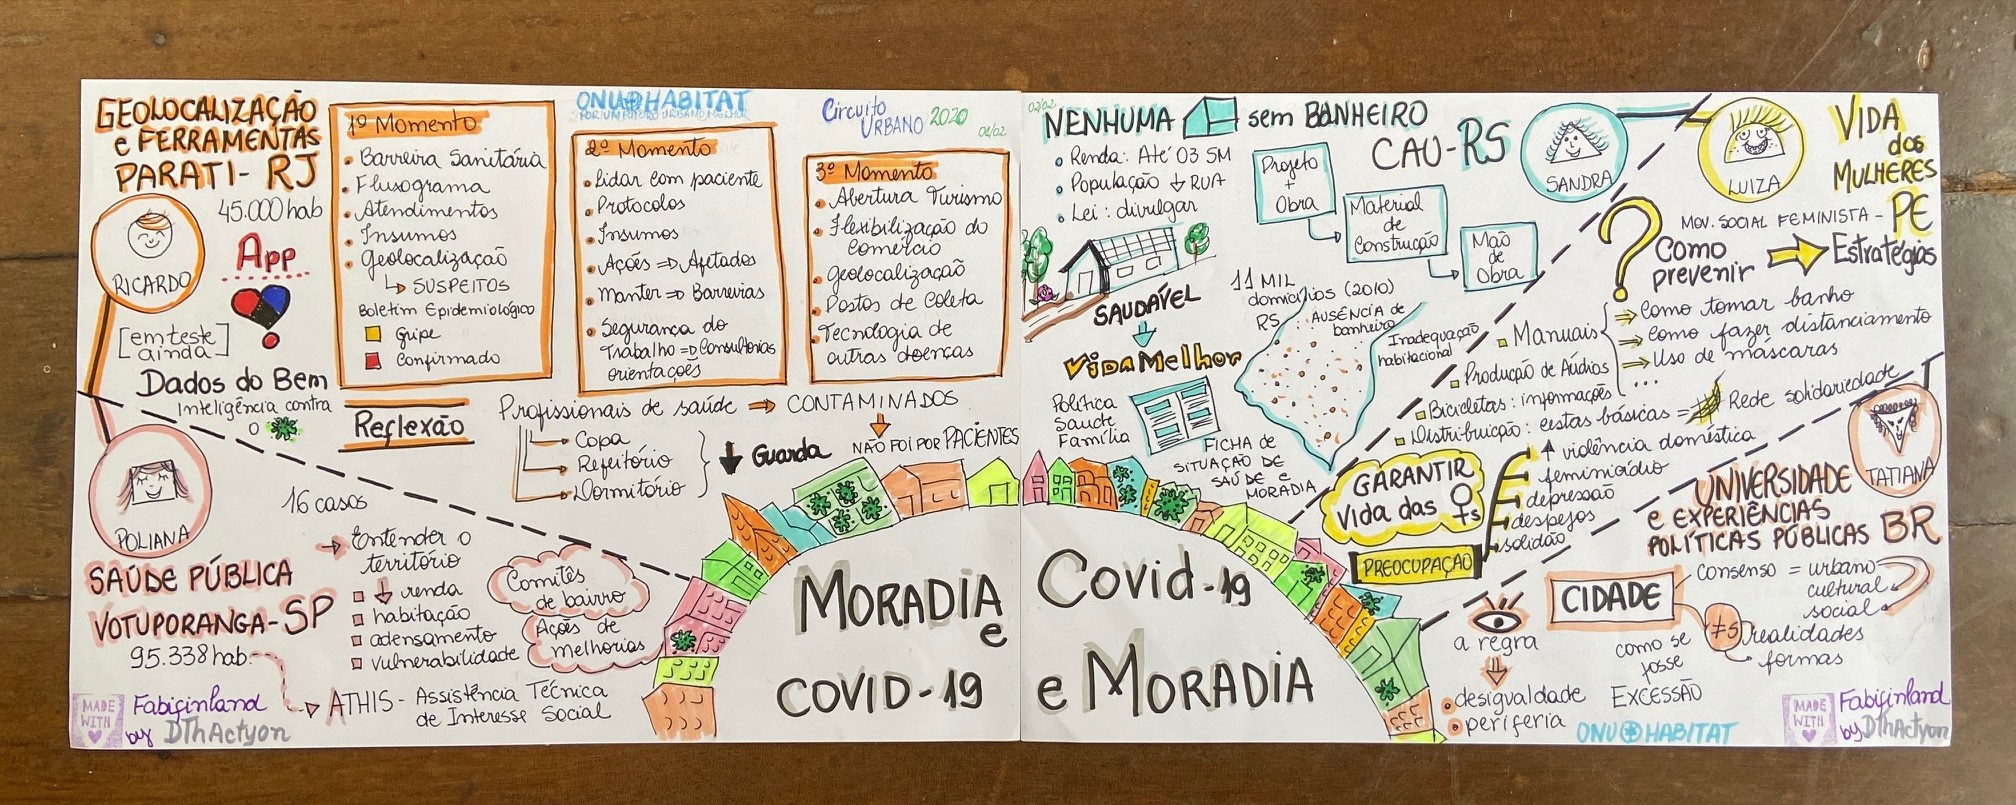 GEOLOCALIZAÇÃO
e FERRAMENTAS
PARATI - RJ
45.000 hab
RICARDO
App
[em teste
ainda]
Dados do Bem
Inteligência contra
o
1º Momento
Barreira Sanitária
Fluxograma
Atendimentos
Insumos
Geolocalização
SUSPEITOS
Boletim Epidemiológico
Gripe
Confirmado
ONU HABITAT
POR UM FUTURO URBANO MELHOR
2º Momento
Lidar com paciente
Protocolos
Insumos
Ações => Afetados
Manter => Barreiras
Segurança do
Trabalho => Consultorias
orientações
Circuito
URBANO 2020
01/02
3º Momento
Abertura Turismo
Flexibilização do
comércio
Geolocalização
Postos de Coleta
Tecnologia de
outras doenças
Reflexão
Profissionais de saúde → CONTAMINADOS
Copa
Refeitório
Dormitório
Guarda
NÃO FOI POR PACIENTES
POLIANA
16 casos
SAÚDE PÚBLICA
VOTUPORANGA - SP
95.338 hab.
Entender o
território
↓ renda
habitação
adensamento
vulnerabilidade
Comitês
de bairro
Ações de
melhorias
ATHIS - Assistência Técnica
de Interesse Social
MADE
WITH
Fabiginland
by DThActyon
MORADIA
e
COVID-19
02/02
NENHUMA sem BANHEIRO
CAU-RS
Renda: Até 03 SM
População ↓ RUA
Lei: divulgar
Projeto
+
Obra
Material
de
Construção
Mão
de
Obra
SANDRA
SAUDÁVEL
Vida Melhor
Política
Saúde
Família
FICHA DE
SITUAÇÃO DE
SAÚDE e
MORADIA
11 MIL
domicílios (2010)
RS : AUSÊNCIA de
banheiro
Inadequação
habitacional
LUIZA
VIDA
dos
MULHERES
MOV. SOCIAL FEMINISTA - PE
? Como
prevenir
Estratégias
Manuais
Como tomar banho
Como fazer distanciamento
Uso de máscaras
...
Produção de Áudios
Bicicletas: informações
Distribuição: cestas básicas = Rede solidariedade
GARANTIR
Vida das ♀s
PREOCUPAÇÃO
↑ violência doméstica
feminicídio
depressão
despejos
solidão
TATIANA
UNIVERSIDADE
e EXPERIÊNCIAS
POLÍTICAS PÚBLICAS BR
a regra
desigualdade
periferia
CIDADE
consenso = urbano
cultural
social
≠s realidades
formas
como se
fosse
EXCESSÃO
Covid-19
e MORADIA
ONU HABITAT
MADE
WITH
Fabiginland
by DThActyon